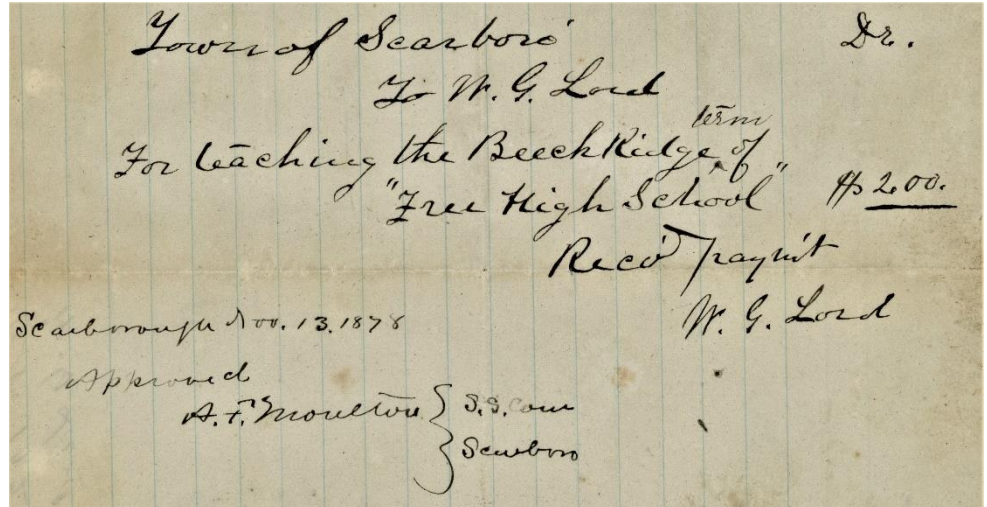 Town of Scarboro' Dr.
To W. G. Lord
term
For teaching the Beech Ridge of
"Free High School" $200.
Rec'd paym't
W. G. Lord
Scarborough Nov. 13. 1878
Approved
A. F. Moulton } S. S. Com
Scarboro